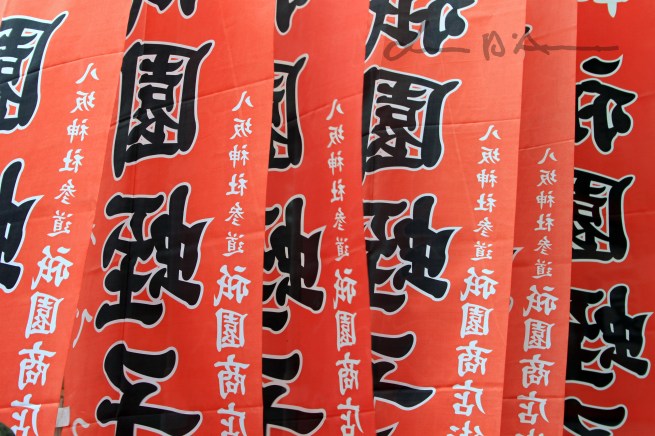 祇園蛭子
八坂神社参道 祇園商店
八坂神社参道 祇園商店街
祇園蛭子
八坂神社参道 祇園商店
園蛭子
八坂神社参道 祇園商店
祇園蛭子
八坂神社参道 祇園商店
園蛭